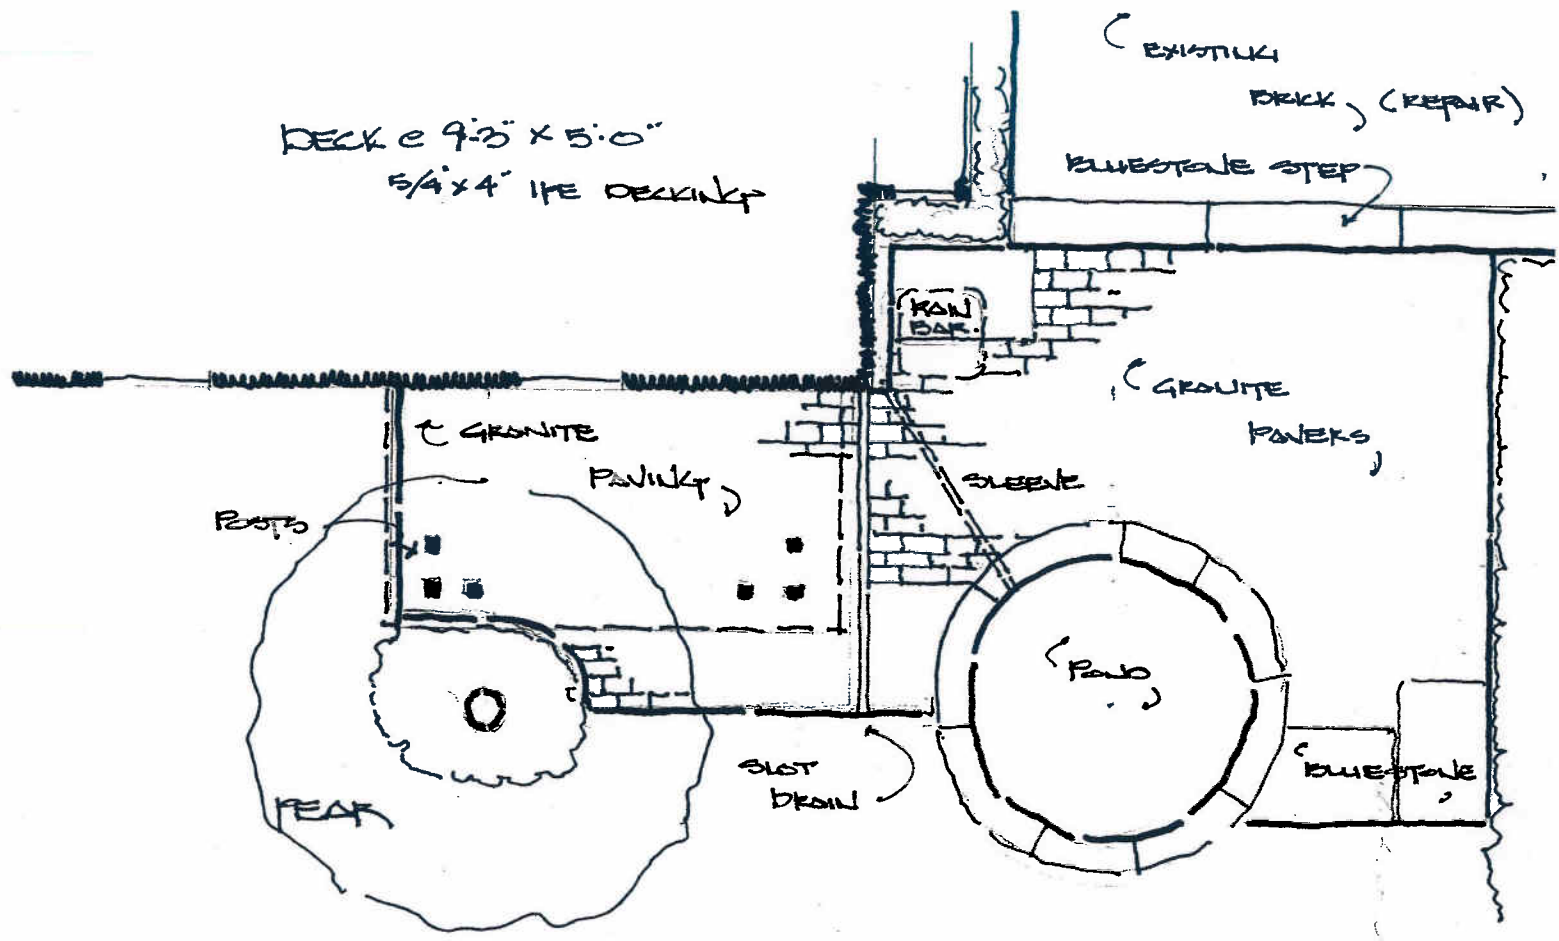 EXISTING
BRICK, (REPAIR)
DECK @ 9'-3" X 5'-0"
5/4" X 4" IPE DECKING
BLUESTONE STEP
RAIN
BAR.
GRANITE
PAVERS
GRANITE
PAVING
SLEEVE
POSTS
POND
SLOT
DRAIN
BLUESTONE
PEAR